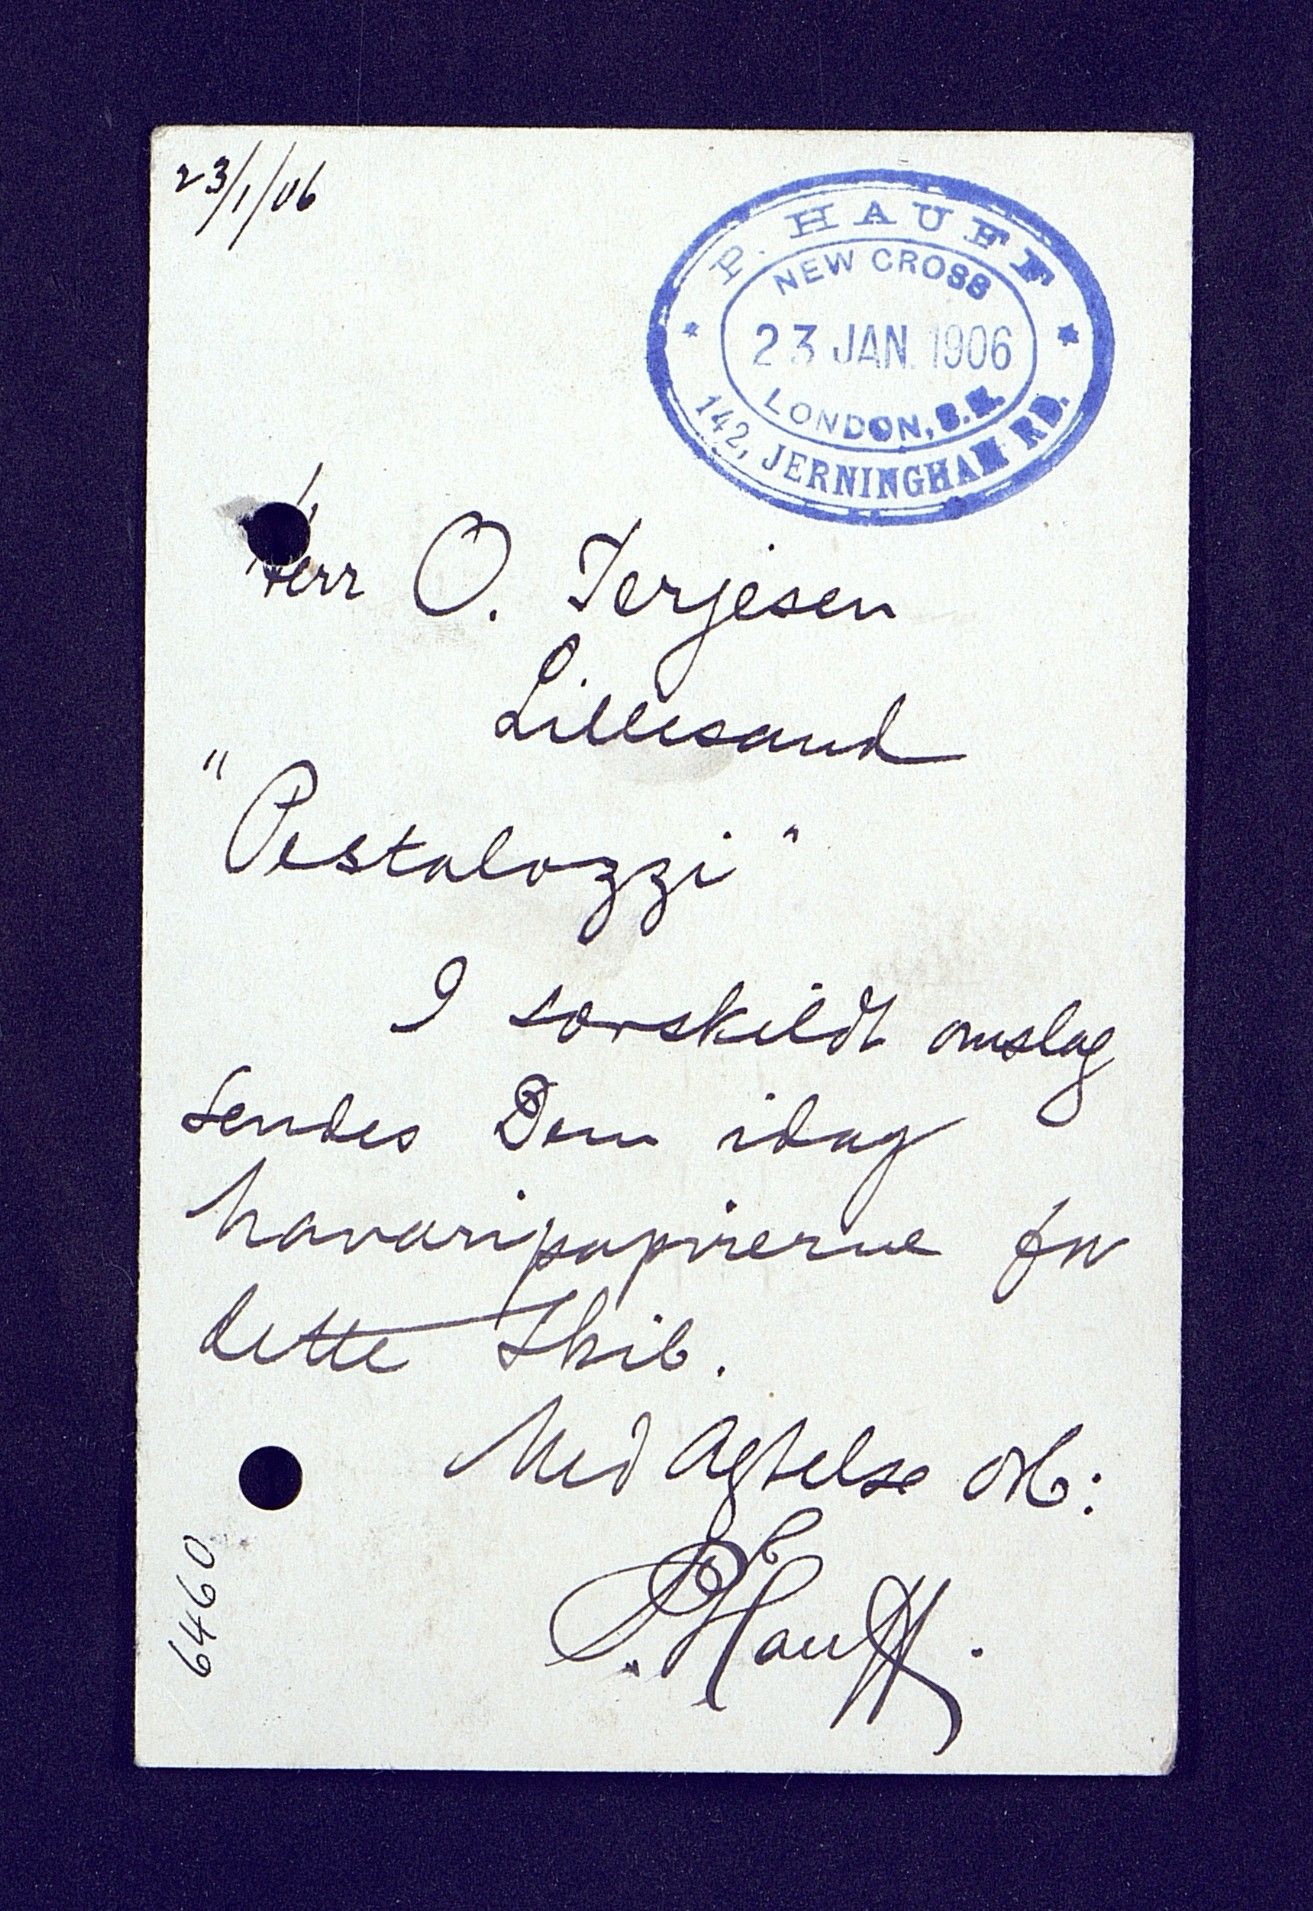 23/1/06
P. HAUFF
NEW CROSS
23 JAN. 1906
LONDON, S.E.
142, JERNINGHAM RD.
Herr O. Terjesen
Lillesand
"Pestalozzi"
I særskildt omslag
sendes Dem idag
havaripapirerne for
dette Skib.
Med Agtelse
P. Hauff.
6460